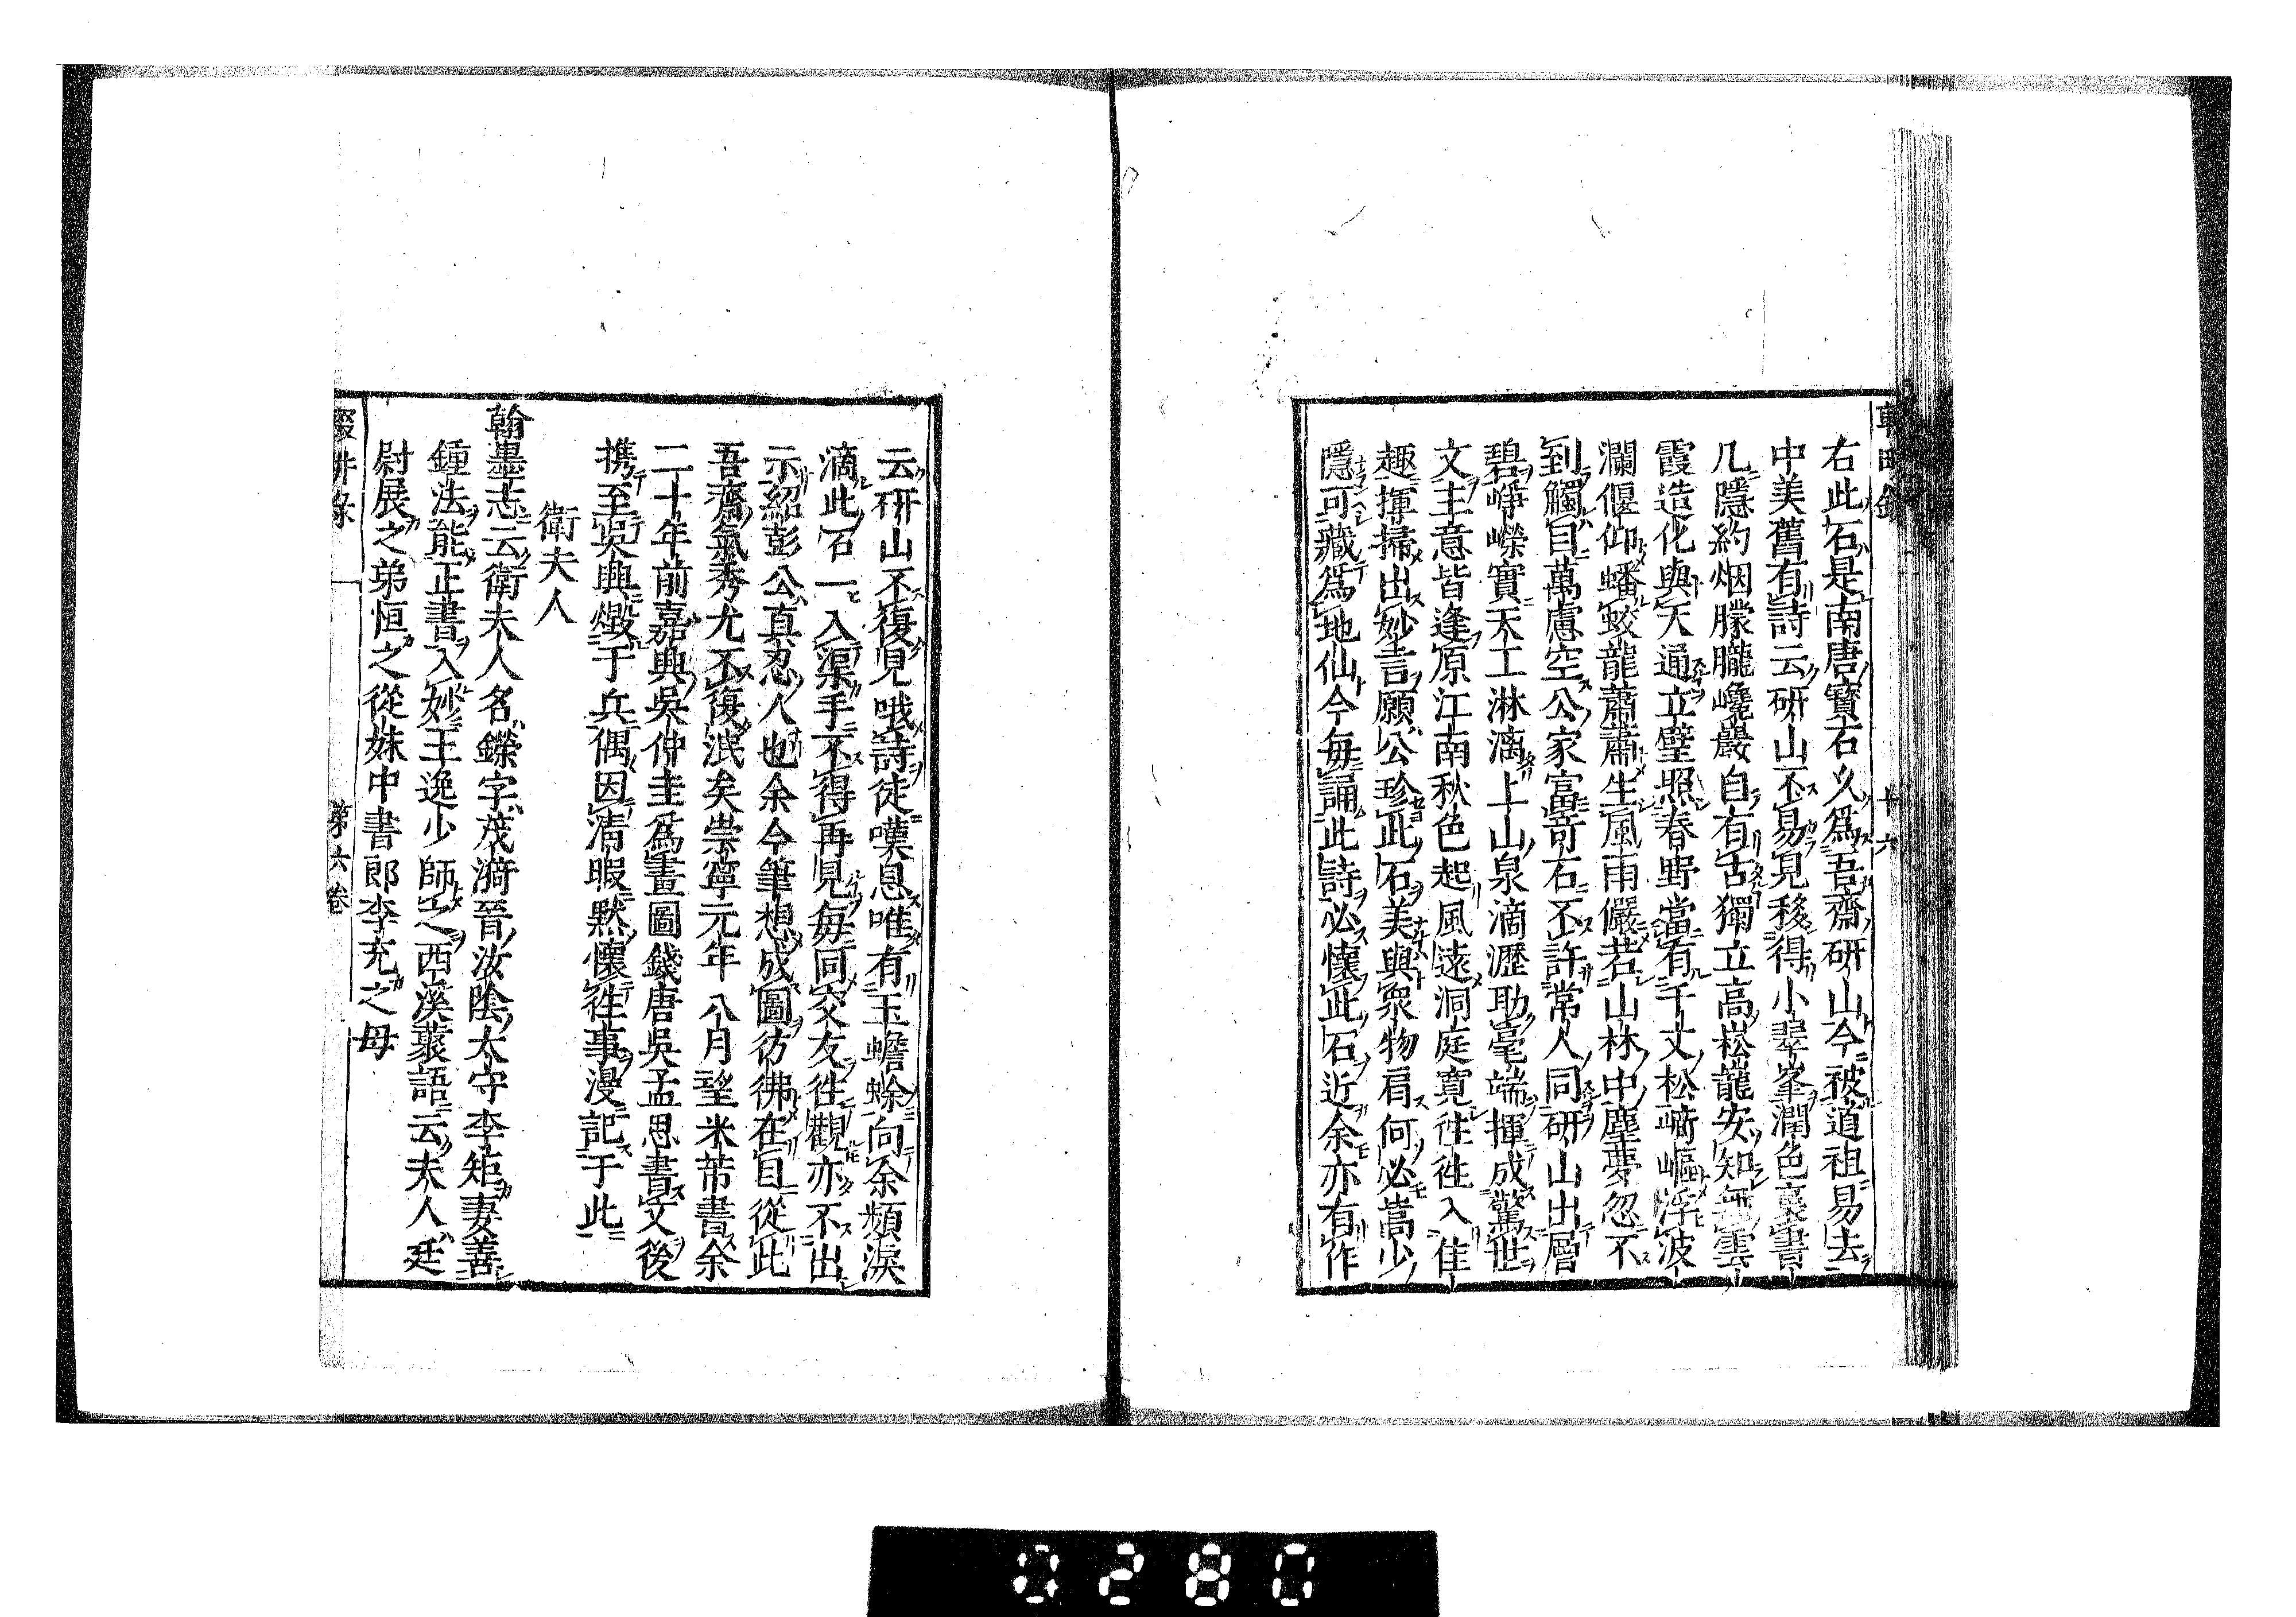 右此石是南唐寶石久爲吾齋研山今被道祖易去
中美舊有詩云研山不易見移得小翠峯潤色裏書
几隱約烟朦朧巉巖自有古獨立高崧巃安知無雲
霞造化與天通立壁照春野當有千丈松崎嶇浮波
瀾偃仰蟠蛟龍蕭蕭生風雨儼若山林中塵夢忽不
到觸目萬慮空公家富奇石不許常人同研山出層
碧崢嶸實天工淋漓上山泉滴瀝助毫端揮成驚世
文主意皆逢原江南秋色起風遠洞庭寬往往入佳
趣揮掃出妙言願公珍此石美與衆物肩何必嵩少
隱可藏爲地仙今每誦此詩必懷此石近余亦有作
云研山不復見哦詩徒嘆息唯有玉蟾蜍向余頻淚
滴此石一入渠手不得再見每同交友徃觀亦不出
示紹彭公真忍人也余今筆想成圖彷彿在目從此
吾齋氣秀尤不復泯矣崇寧元年八月望米芾書余
二十年前嘉興吳仲圭爲畫圖錢唐吳孟思書文後
携至吳興燬于兵偶因清暇默懷徃事漫記于此
衛夫人
翰墨志云衛夫人名鑠字茂漪晉汝陰太守李矩妻善
鍾法能正書入妙王逸少師之西溪叢語云夫人廷
尉展之弟恒之從妹中書郎李充之母
十六
第六卷
0280